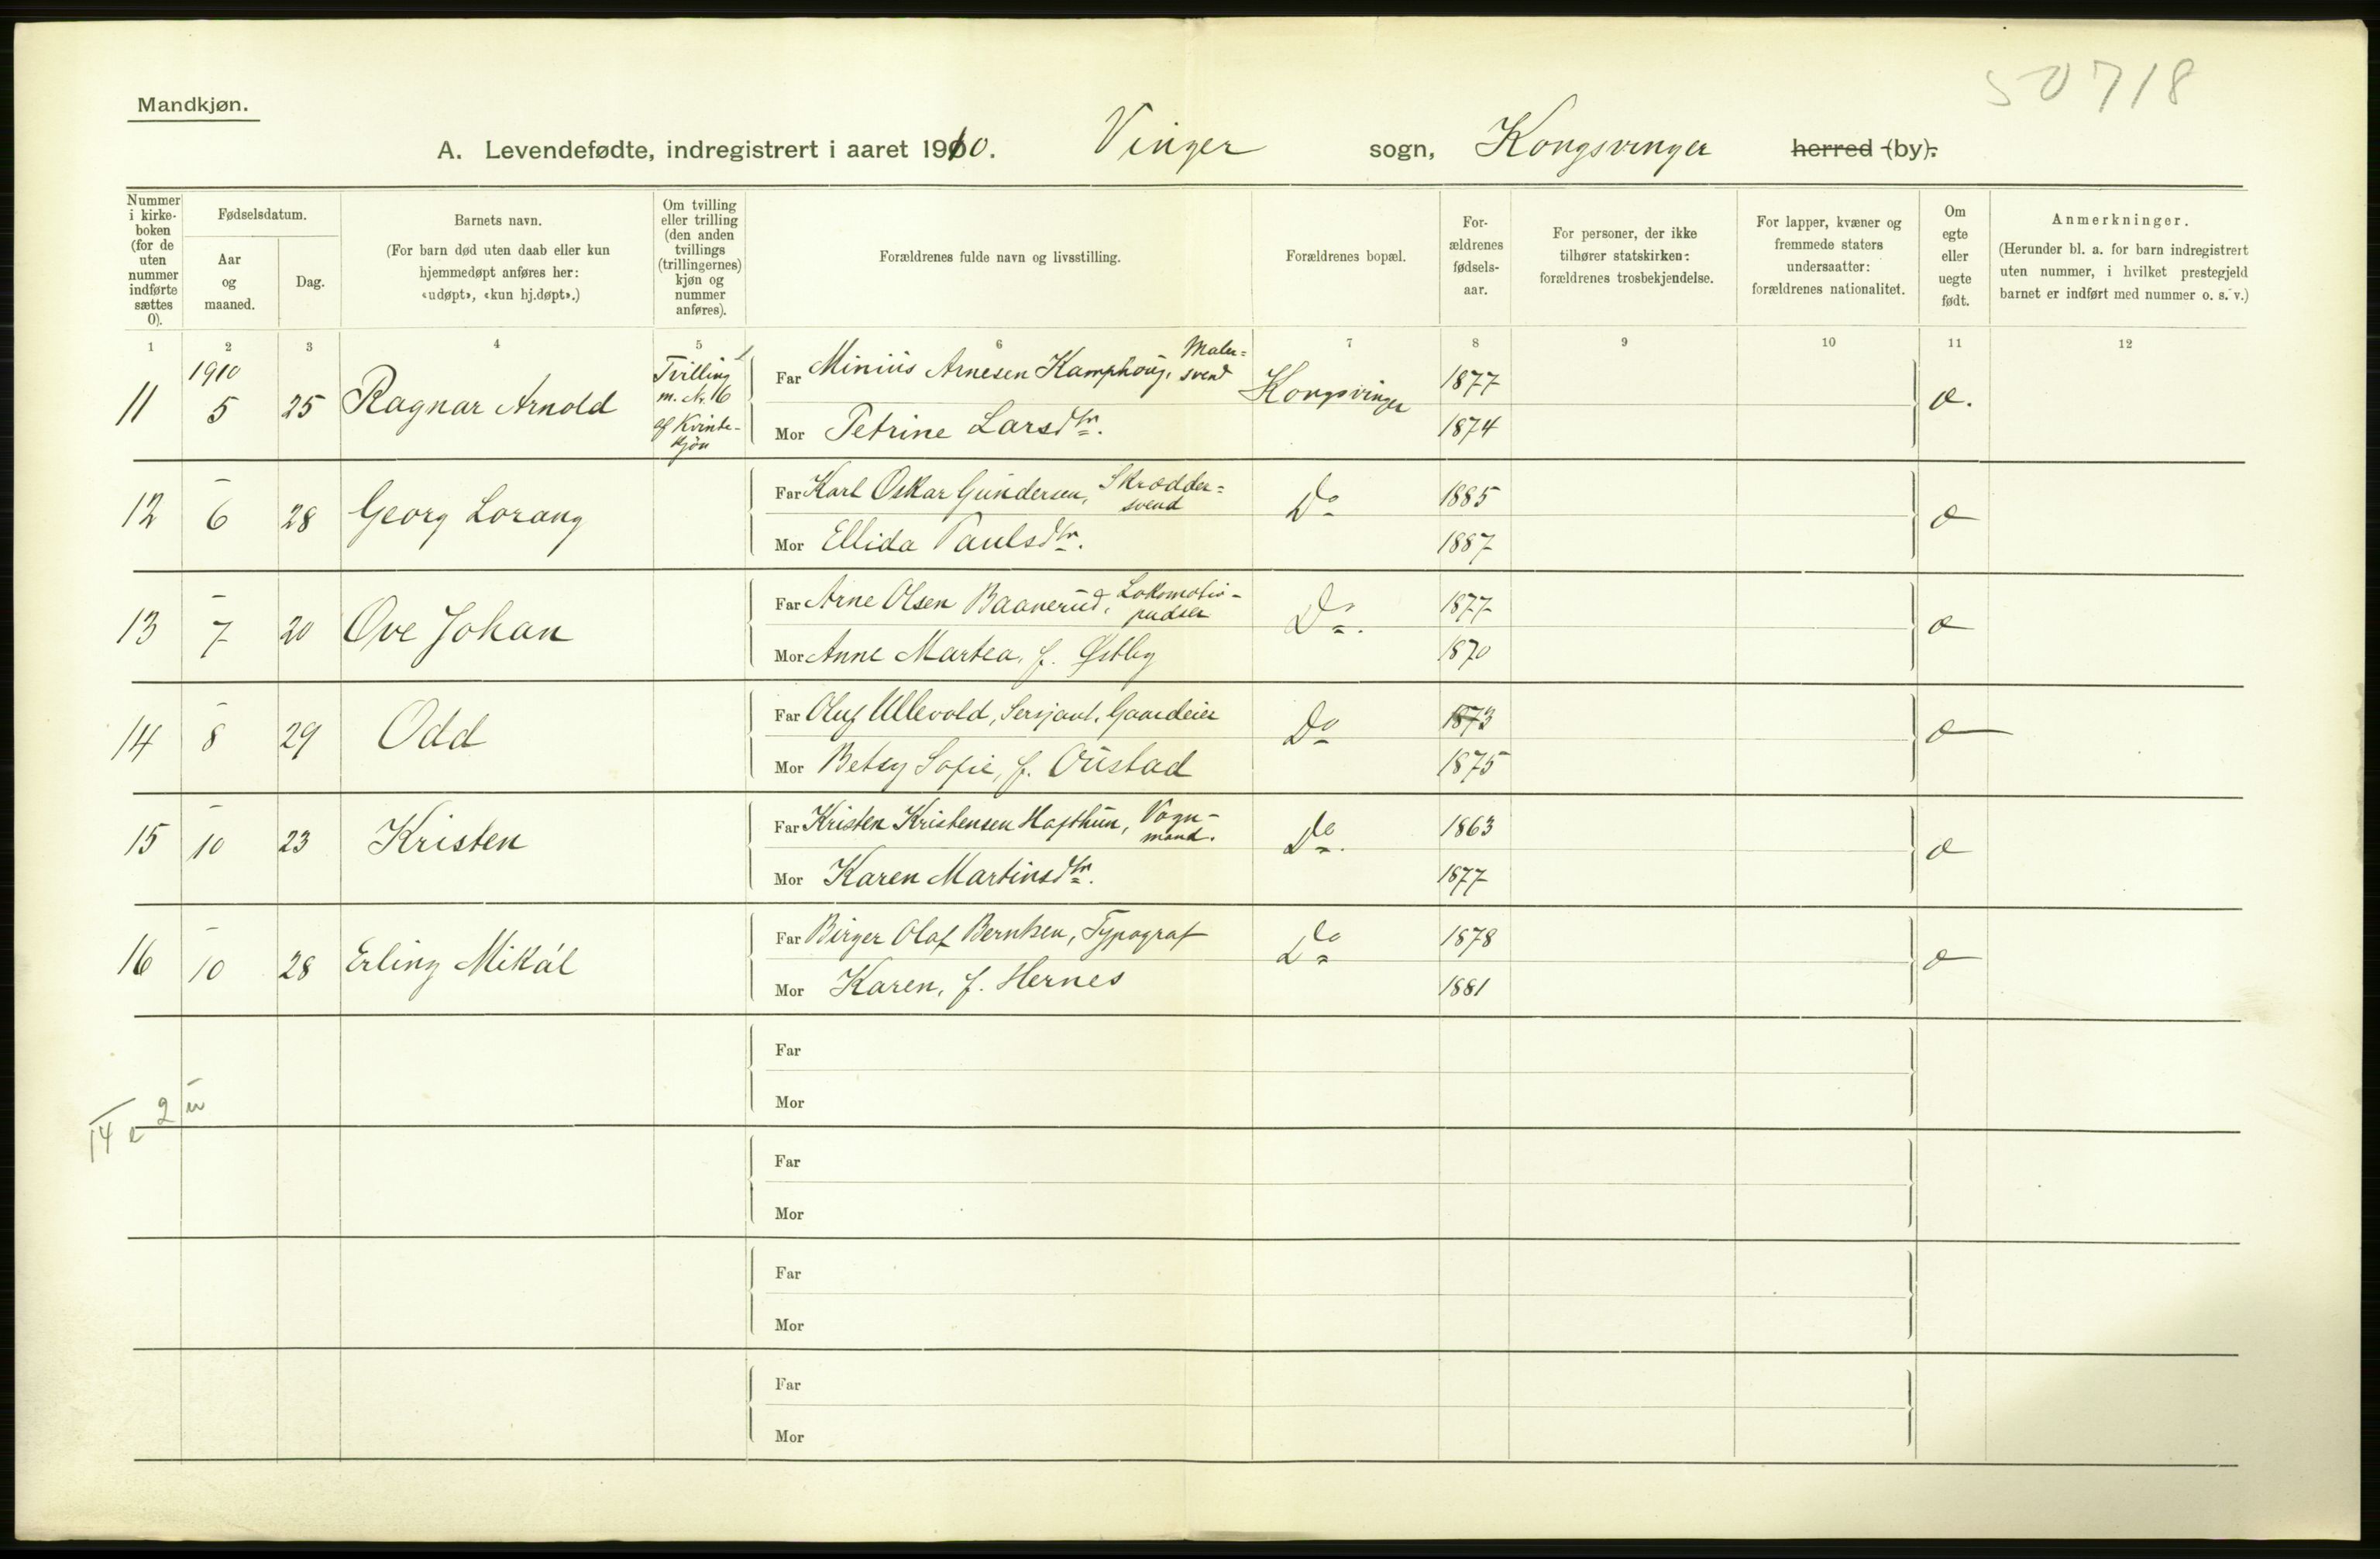 50718
Mandkjøn.
A. Levendefødte, indregistrert i aaret 1910. Vinger sogn, Kongsvinger herred (by).
Nummer i kirke-boken (for de uten nummer indførte sættes 0).
Fødselsdatum.
Aar og maaned.
Dag.
Barnets navn.
(For barn død uten daab eller kun hjemmedøpt anføres her: «udøpt», «kun hj.døpt».)
Om tvilling eller trilling (den anden tvillings (trillingernes) kjøn og nummer anføres).
Forældrenes fulde navn og livsstilling.
Forældrenes bopæl.
For-ældrenes fødsels-aar.
For personer, der ikke tilhører statskirken: forældrenes trosbekjendelse.
For lapper, kvæner og fremmede staters undersaatter: forældrenes nationalitet.
Om egte eller uegte født.
Anmerkninger.
(Herunder bl. a. for barn indregistrert uten nummer, i hvilket prestegjeld barnet er indført med nummer o. s. v.)
1 2 3 4 5 6 7 8 9 10 11 12
11 1910 5 25 Ragnar Arnold Tvilling m. Nr. 16 af Kvinde-kjøn
Far Minius Arnesen Kamphoug, Maler=svend Kongsvinger 1877 æ.
Mor Petrine Larsdtr. 1874
12 – 6 28 Georg Lorang
Far Karl Oskar Gundersen, Skrædder=svend Do 1885 æ
Mor Ellida Paulsdtr. 1887
13 – 7 20 Ove Johan
Far Arne Olsen Baanerud, Lokomotiv-pudser Do. 1877 æ
Mor Anne Martea, f. Østby 1870
14 – 8 29 Odd
Far Oluf Ullevold, Sersjant, Gaardeier Do 1873 æ
Mor Betsy Sofie, f. Oustad 1875
15 – 10 23 Kristen
Far Kristen Kristensen Hafthun, Vogn-mand. Do. 1863 æ
Mor Karen Martinsdtr. 1877
16 – 10 28 Erling Mikál
Far Birger Olaf Berntsen, Typograf Do 1878 æ
Mor Karen, f. Hernes 1881
Far
Mor
14 e 2 u
Far
Mor
Far
Mor
Far
Mor